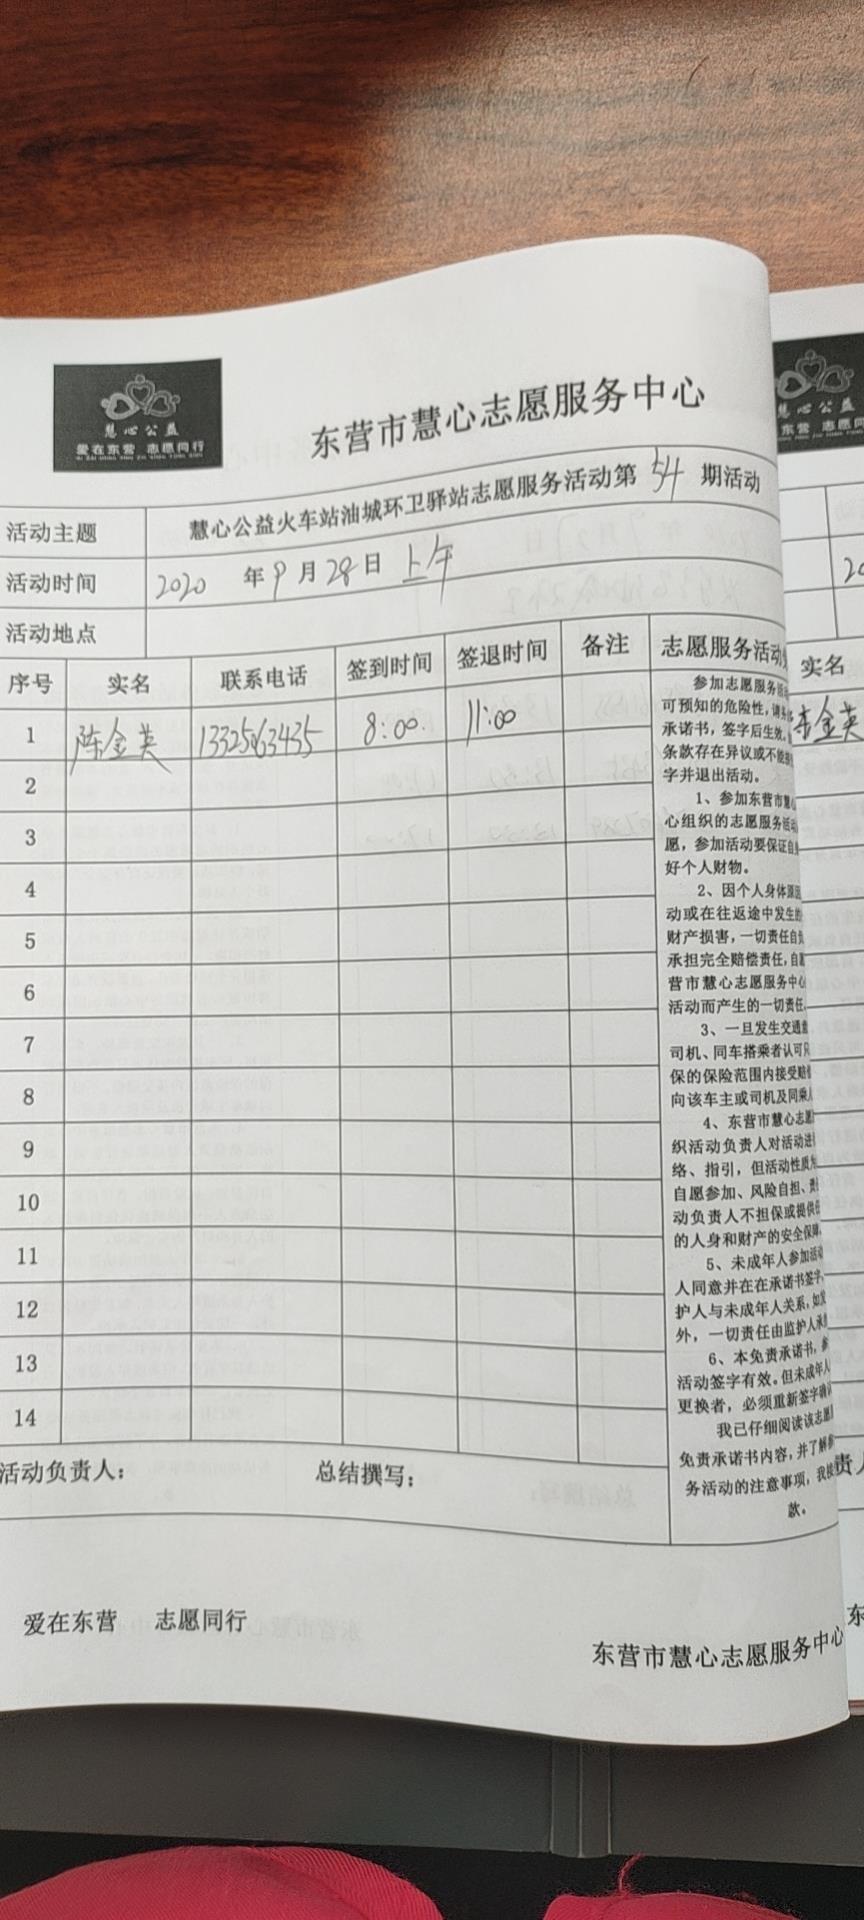 慧心公益
爱在东营 志愿同行
东营市慧心志愿服务中心
活动主题 慧心公益火车站油城环卫驿站志愿服务活动第 54 期活动
活动时间 2020 年 9 月 28 日 上午
活动地点
序号 实名 联系电话 签到时间 签退时间 备注 志愿服务活动
1 陈金英 13325063435 8:00 11:00
2
3
4
5
6
7
8
9
10
11
12
13
14
参加志愿服务活
可预知的危险性,请
承诺书,签字后生效,
条款存在异议或不能
字并退出活动。
1、参加东营市慧
心组织的志愿服务活动
愿,参加活动要保证自
好个人财物。
2、因个人身体原因
动或在往返途中发生的
财产损害,一切责任自
承担完全赔偿责任,自愿
营市慧心志愿服务中心
活动而产生的一切责任
3、一旦发生交通
司机、同车搭乘者认可只
保的保险范围内接受赔
向该车主或司机及同乘
4、东营市慧心志愿
织活动负责人对活动进
络、指引,但活动性质为
自愿参加、风险自担、责
动负责人不担保或提供任
的人身和财产的安全保障
5、未成年人参加活动
人同意并在在承诺书签字,
护人与未成年人关系,如发
外,一切责任由监护人承
6、本免责承诺书,参
活动签字有效。但未成年人
更换者,必须重新签字确认
我已仔细阅读该志愿
免责承诺书内容,并了解
务活动的注意事项,我
款。
活动负责人: 总结撰写:
爱在东营 志愿同行
东营市慧心志愿服务中心
慧心公益
东营 志愿同行
20
实名
金英
责人
东